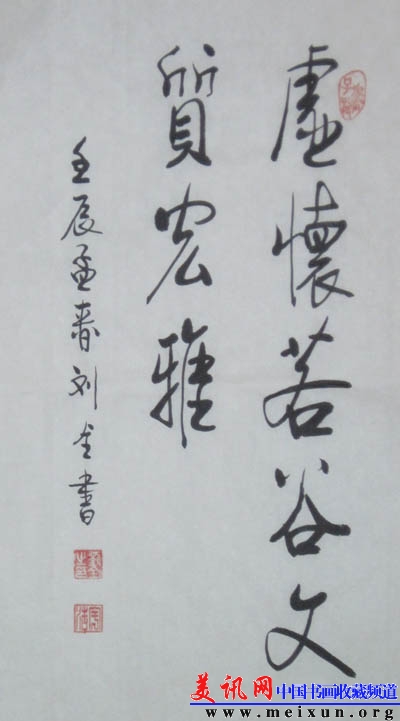 虛懷若谷文
質宏雅
壬辰孟春刘全書
美讯网 中国书画收藏频道
www.meixun.org